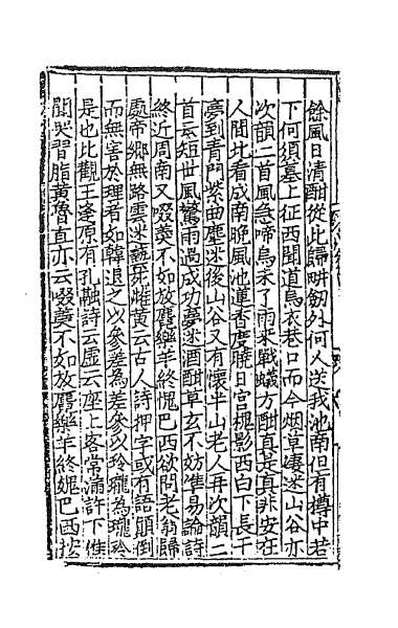 餘風日清酣從此歸畊劒外何人送我池南但有樽中若
下何須墓上征西聞道烏衣巷口而今烟草凄迷山谷亦
次韻二首風急啼烏未了雨來戰蟻方酣真是真非安在
人間北看成南晚風池蓮香度曉日宮槐影西白下長干
夢到青門紫曲塵迷後山谷又有懷半山老人再次韻二
首云短世風驚雨過成功夢迷酒酣草玄不妨準易論詩
終近周南又啜羹不如放麑樂羊終愧巴西欲問老翁歸
處帝鄉無路雲迷藝苑雌黃云古人詩押字或有語顛倒
而無害於理者如韓退之以參差為差參以玲瓏為瓏玲
是也比觀王逢原有孔融詩云虛云座上客常滿許下惟
聞哭習脂黃魯直亦云啜羹不如放麑樂羊終媿巴西按